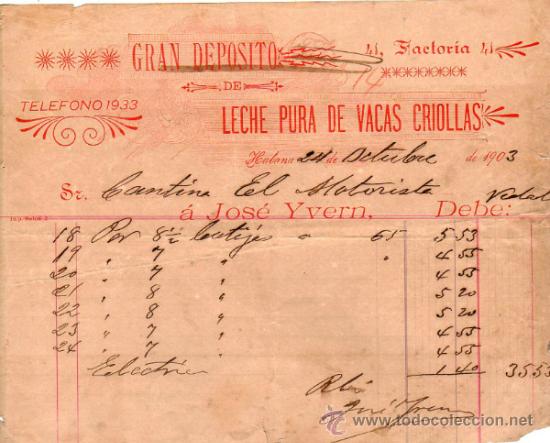 GRAN DEPOSITO 41, Factoría 41
14
DE
TELEFONO 1933
LECHE PURA DE VACAS CRIOLLAS
Habana 24 de Octubre de 1903
Sr. Cantina El Motorista Vidal
á José Yvern, Debe:
18 Por 8½ botijas a 65 5 53
19 " 7 " " 4 55
20 " 7 " 4 55
21 " 8 " 5 20
22 " 8 " 5 20
23 " 7 " 4 55
24 " 7 " 4 55
1 40 35 53
José Yvern
todocoleccion
www.todocoleccion.net